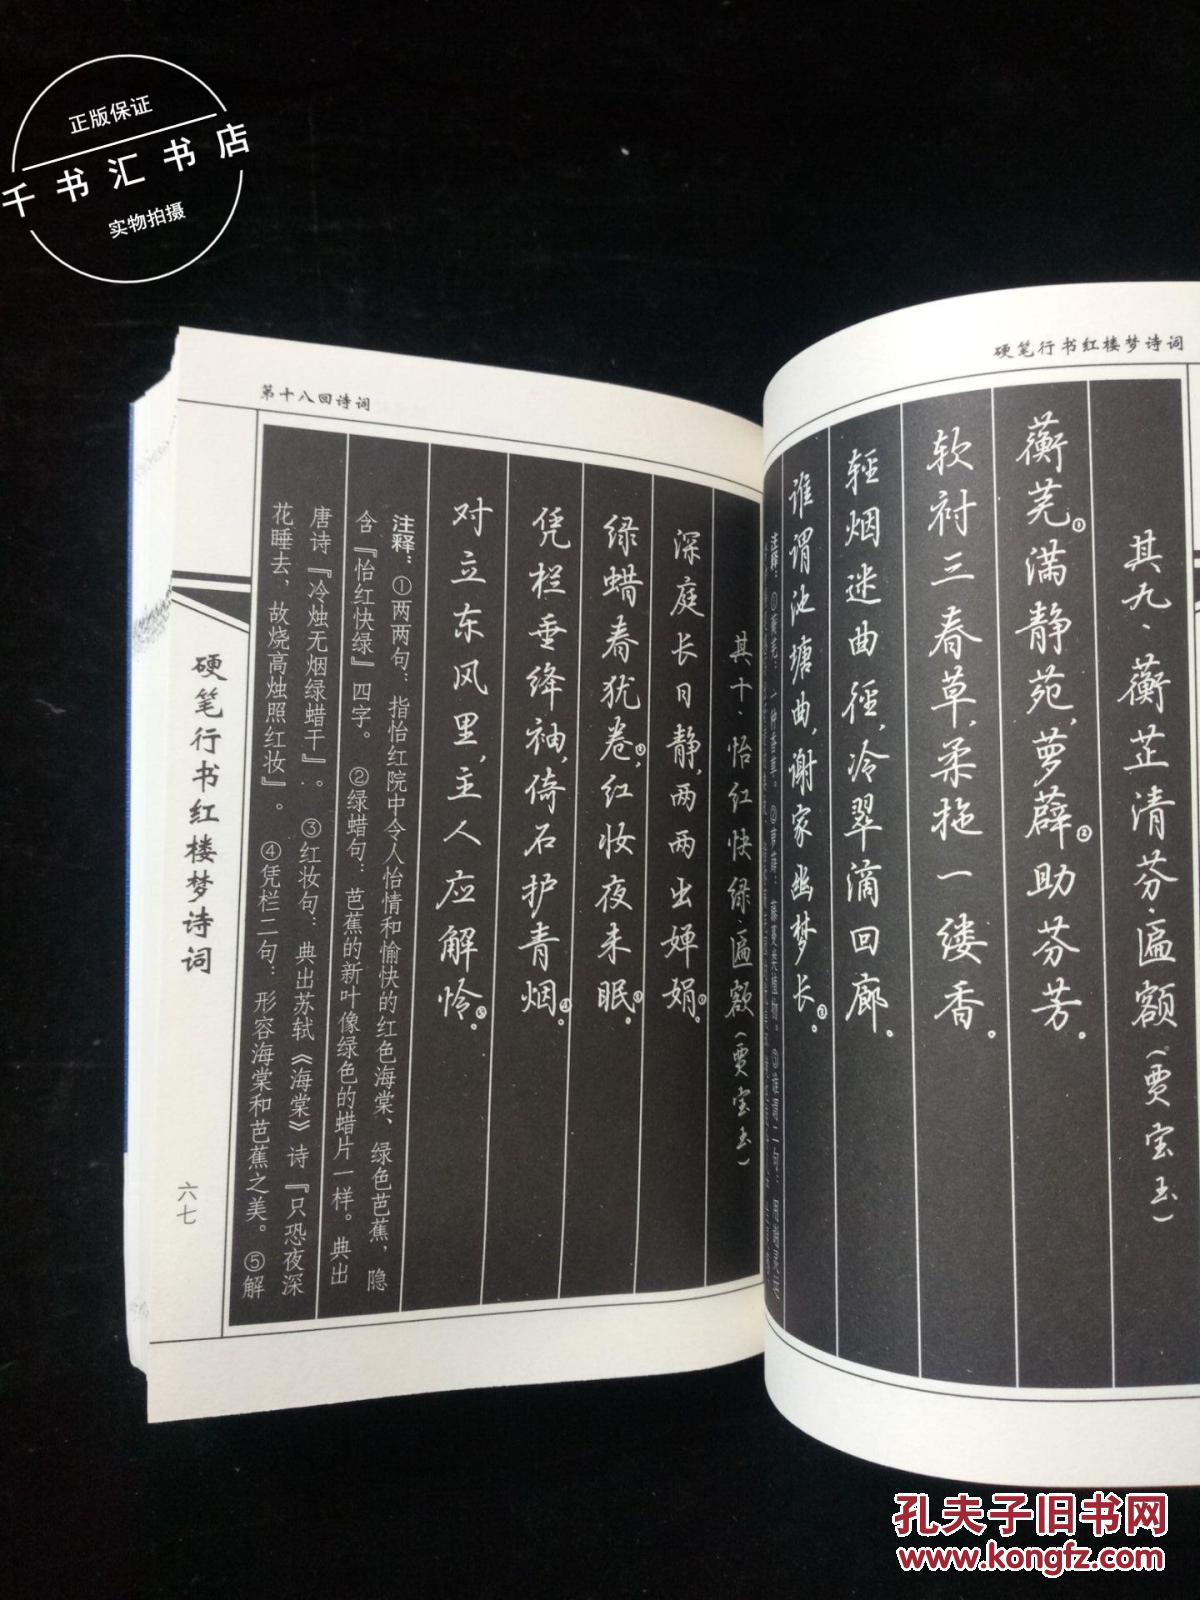 正版保证
千书汇书店
实物拍摄
硬笔行书红楼梦诗词
其九、蘅芷清芬匾额(贾宝玉)
蘅芜①满静苑,萝薜②助芬芳。
软衬三春草,柔拖一缕香。
轻烟迷曲径,冷翠滴回廊。
谁谓池塘曲,谢家幽梦长③。
第十八回诗词
其十、怡红快绿匾额(贾宝玉)
深庭长日静,两两出婵娟①。
绿蜡春犹卷②,红妆夜未眠③。
凭栏垂绛袖,倚石护青烟④。
对立东风里,主人应解怜⑤。
注释:①两两句:指怡红院中令人怡情和愉快的红色海棠、绿色芭蕉,隐
含『怡红快绿』四字。 ②绿蜡句:芭蕉的新叶像绿色的蜡片一样。典出
唐诗『冷烛无烟绿蜡干』。 ③红妆句:典出苏轼《海棠》诗『只恐夜深
花睡去,故烧高烛照红妆』。 ④凭栏二句:形容海棠和芭蕉之美。⑤解
硬笔行书红楼梦诗词
六七
孔夫子旧书网
www.kongfz.com